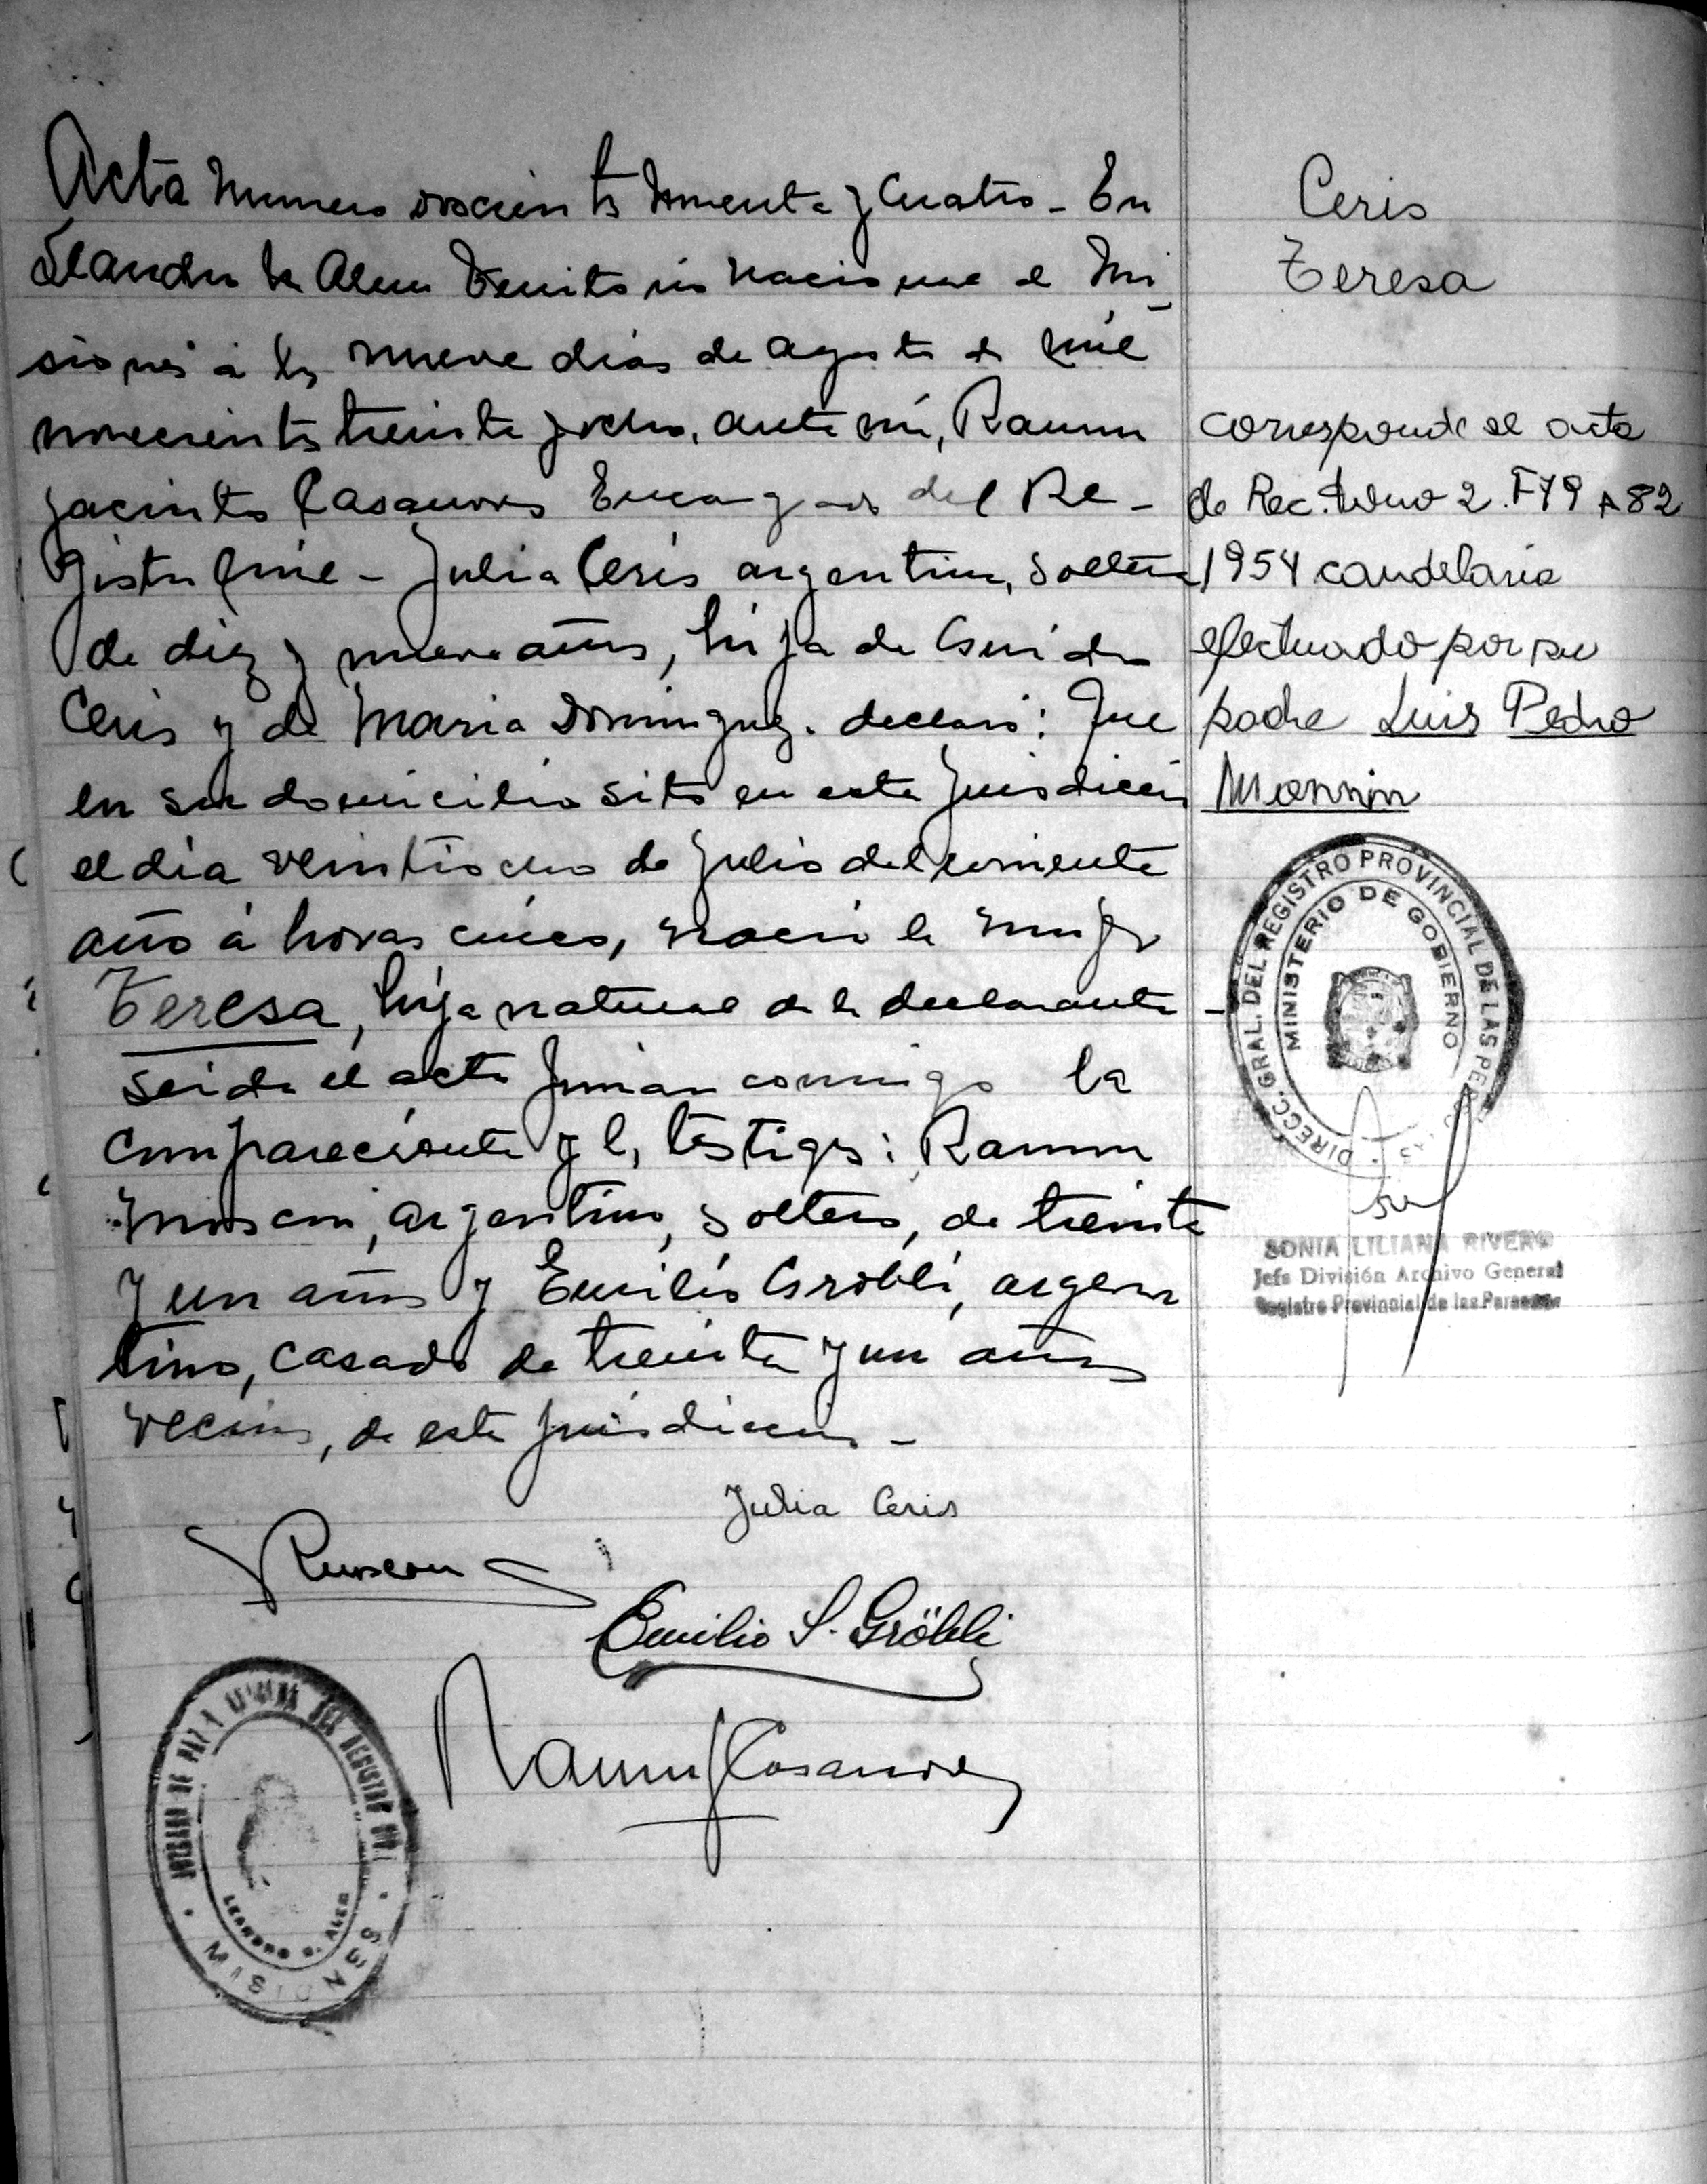 Acta numero doscientos noventa y cuatro - En
Leandro N Alem Territorio nacional de Mi
siones a los nueve dias de agosto de mil
novecientos treinta y ocho, ante mi, Ramon
Jacinto Casanova Encargado del Re -
gistro Civil - Julia Ceris argentina, soltera
de diez y nueve años, hija de Guido
Ceris y de Maria Dominguez. declaró: Que
en su domicilio sito en esta jurisdiccion
el dia veintiocho de Julio del corriente
año á horas cinco, nació la mujer
Teresa, hija natural de la declarante -
Leida el acta firman conmigo la
compareciente y los testigos: Ramon
argentino, soltero, de treinta
y un años y Emilio Grobli, argen
tino, casado de treinta y un años
vecinos, de esta jurisdiccion -
Julia Ceris
Emilio S. Gröbli
Ramon J Casanova
JUZGADO DE PAZ Y DEL REGISTRO CIVIL
LEANDRO N. ALEM
MISIONES
Ceris
Teresa
corresponde el acta
de Rec. tomo 2. F79 A 82
1954 candelaria
efectuado por su
padre Luis Pedro
Monnin
DIRECC. GRAL. DEL REGISTRO PROVINCIAL DE LAS PERSONAS
MINISTERIO DE GOBIERNO
SONIA LILIANA RIVERO
Jefe División Archivo General
Registro Provincial de las Personas